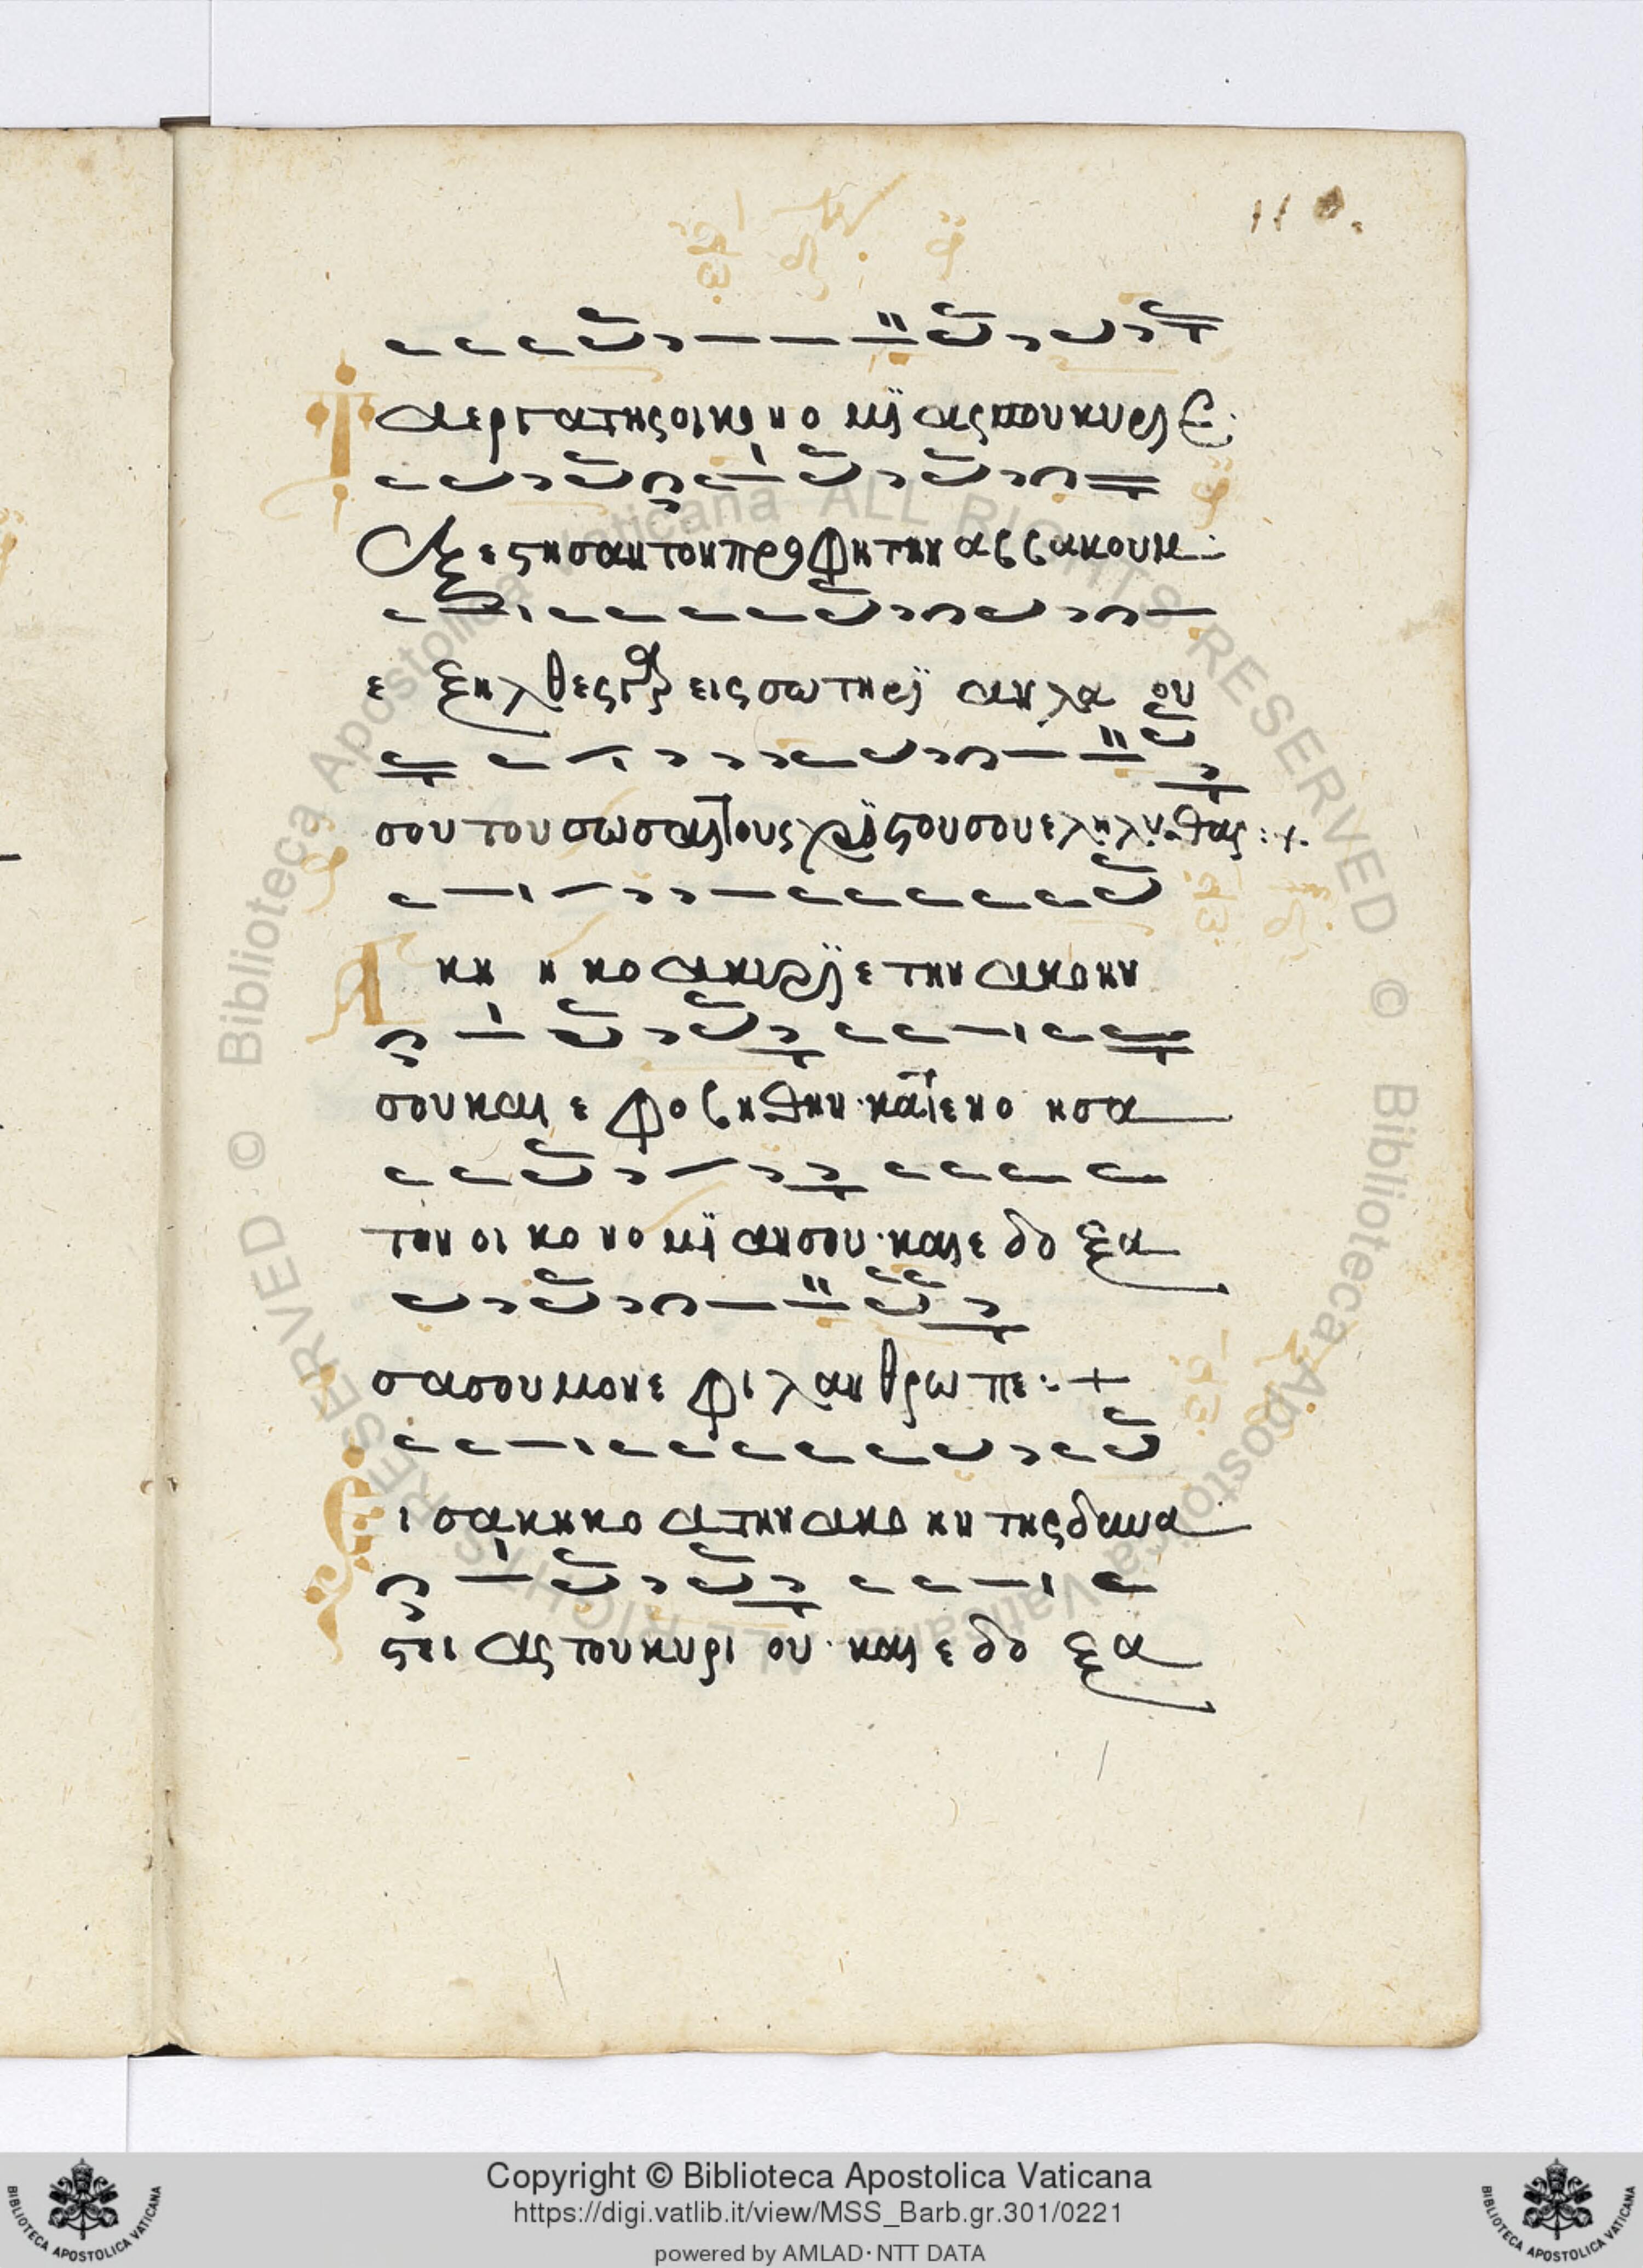 110.
Τα εργα της οικονομιας σου κυριε
εξεστησαν τον προφητην αββακουμ
ε ξηλθες γαρ εις σωτηριαν λα ου
σου του σωσαι τους χριστους σου εληλυθας :+
Ακηκοα κυριε την ακοην
σου και εφοβηθην · κατενοησα
την οικονομιαν σου · και εδοξα
σα σου μονε φιλανθρωπε :· +
Εισακηκοα την ακοην της δυνα
στειας του κυριου · και εδοξα
Copyright © Biblioteca Apostolica Vaticana
https://digi.vatlib.it/view/MSS_Barb.gr.301/0221
powered by AMLAD · NTT DATA
BIBLIOTECA APOSTOLICA VATICANA
BIBLIOTECA APOSTOLICA VATICANA
© Biblioteca Apostolica Vaticana ALL RIGHTS RESERVED
© Biblioteca Apostolica Vaticana ALL RIGHTS RESERVED